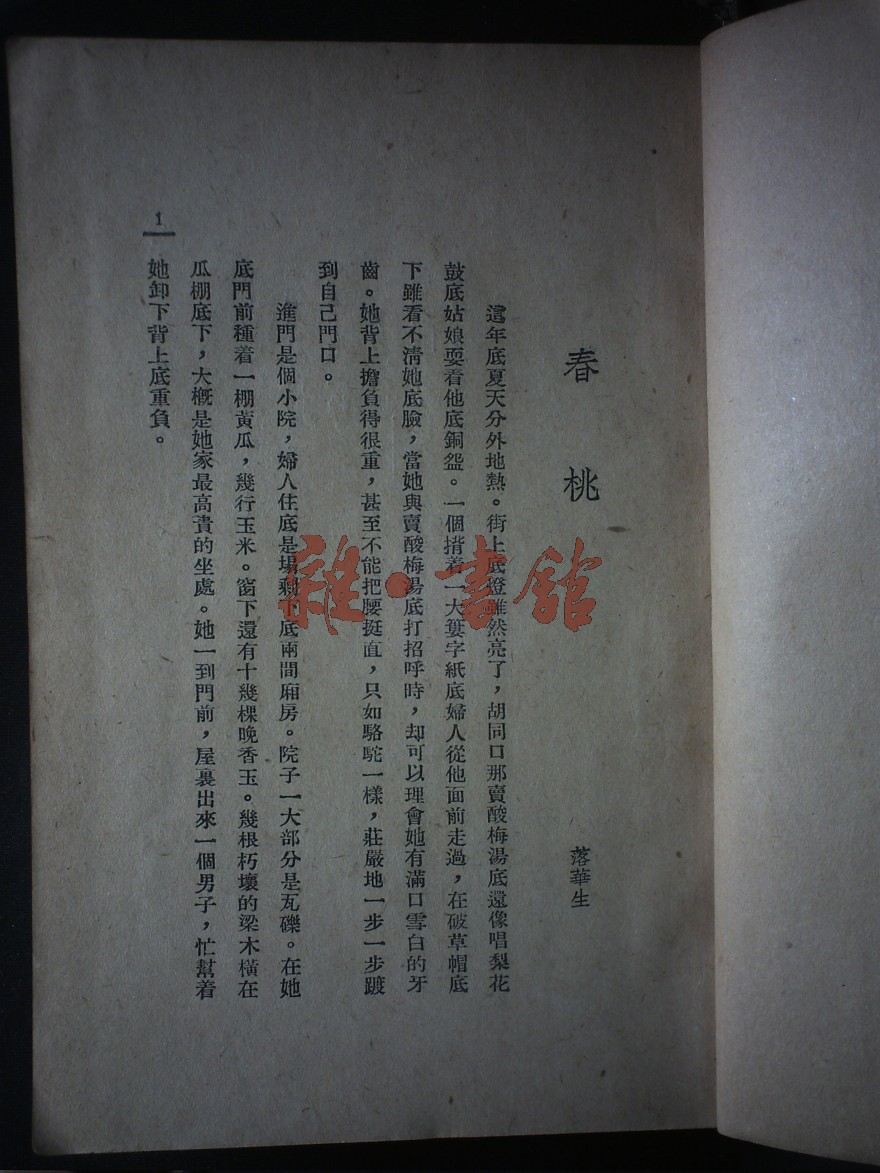 春桃
落華生
這年底夏天分外地熱。街上底燈雖然亮了，胡同口那賣酸梅湯底還像唱梨花
鼓底姑娘耍着他底銅盌。一個揹着一大簍字紙底婦人從他面前走過，在破草帽底
下雖看不清她底臉，當她與賣酸梅湯底打招呼時，却可以理會她有滿口雪白的牙
齒。她背上擔負得很重，甚至不能把腰挺直，只如駱駝一樣，莊嚴地一步一步踱
到自己門口。
進門是個小院，婦人住底是塌剩下底兩間廂房。院子一大部分是瓦礫。在她
底門前種着一棚黃瓜，幾行玉米。窗下還有十幾棵晚香玉。幾根朽壞的梁木橫在
瓜棚底下，大概是她家最高貴的坐處。她一到門前，屋裏出來一個男子，忙幫着
她卸下背上底重負。
1
雜·書館